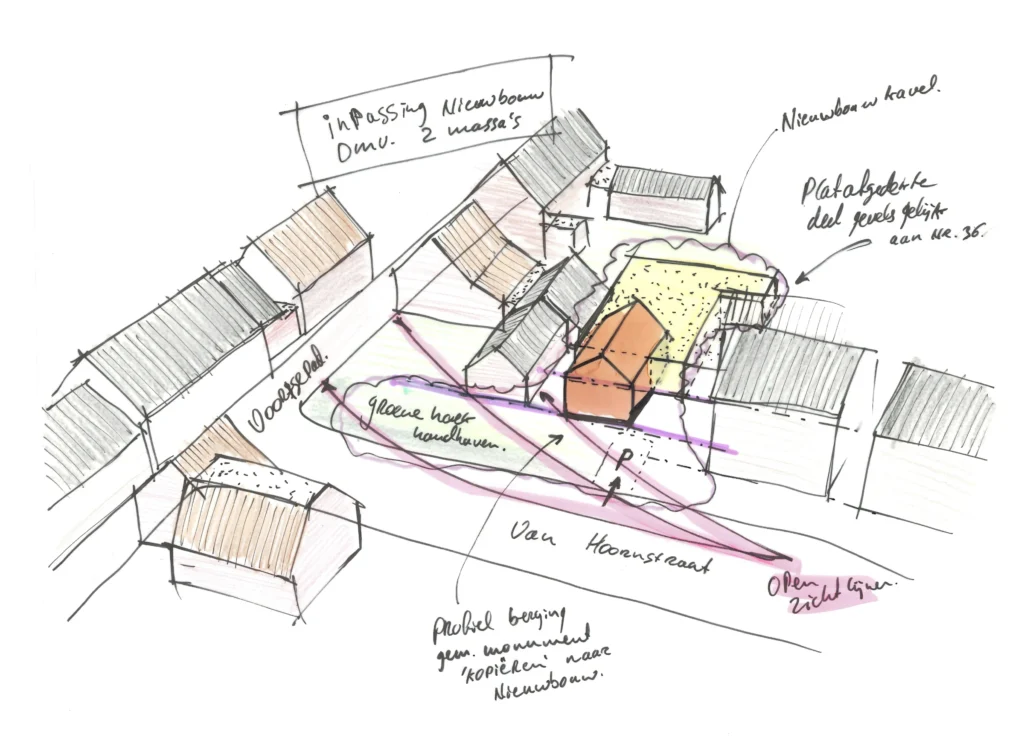 inpassing Nieuwbouw
Dmv. 2 massa's
Nieuwbouw kavel.
Platafgedekte
deel gevels gelijk
aan nr. 36.
Voortse Pad.
groene hoek
handhaven.
P
Van Hoornstraat
OPen
zicht lijnen.
Profiel berging
gem. monument
'KOPIËREN' naar
Nieuwbouw.